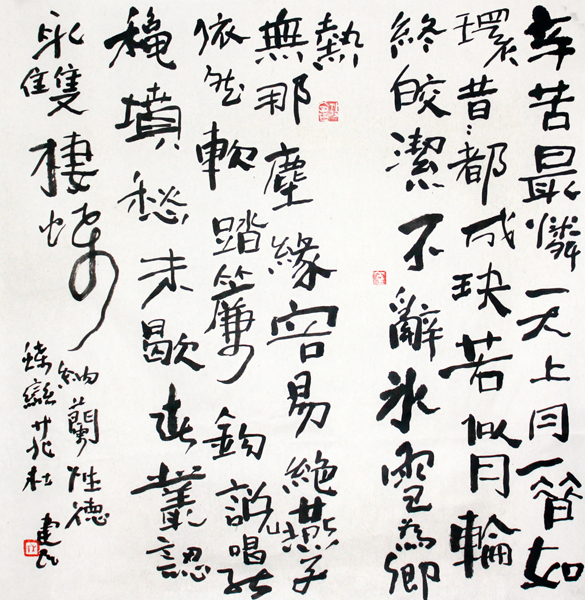 辛苦最憐天上月一昔如
環昔昔都成玦若似月輪
終皎潔不辭冰雪為卿
熱
無那塵緣容易絕燕子
依然軟踏簾鉤說唱罷
穐墳愁未歇春叢認
取雙棲蝶
納蘭性德
蝶戀花